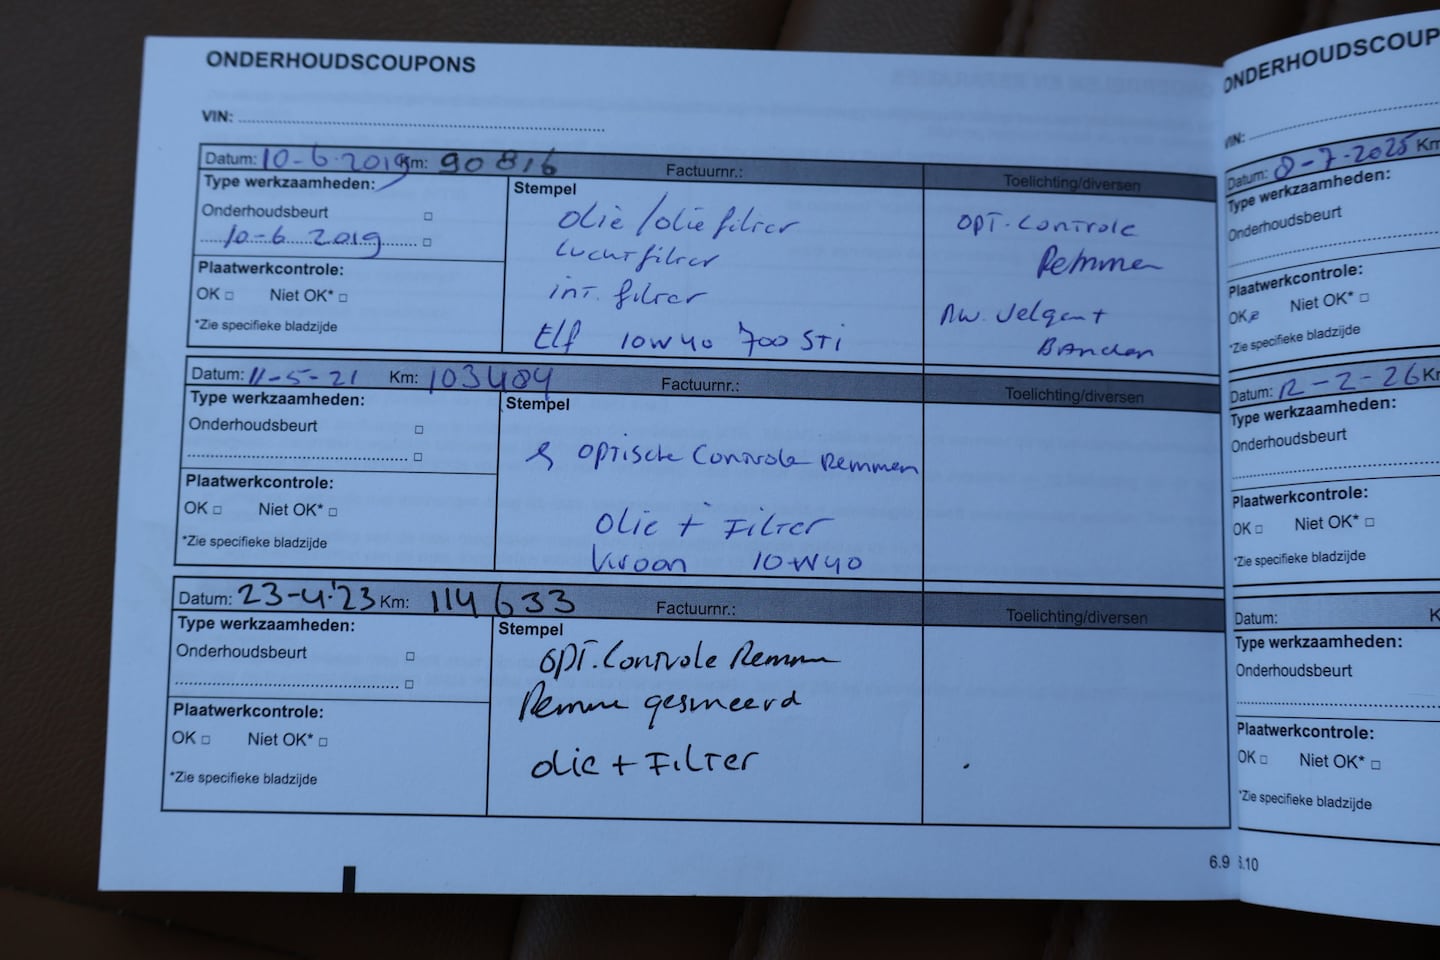 ONDERHOUDSCOUPONS
VIN:
Datum: 10-6-2019 Km: 90816 Factuurnr.: Toelichting/diversen
Type werkzaamheden:
Onderhoudsbeurt
10-6 2019
Plaatwerkcontrole:
OK Niet OK*
*Zie specifieke bladzijde
Stempel
olie/olie filter
Luchtfilter
int. filter
Elf 10W40 700 STi
OPT. Controle
Remmen
Banden
Datum: 11-5-21 Km: 103484 Factuurnr.: Toelichting/diversen
Type werkzaamheden:
Onderhoudsbeurt
Plaatwerkcontrole:
OK Niet OK*
*Zie specifieke bladzijde
Stempel
optische Controle Remmen
olie + Filter
Kroon 10W40
Datum: 23-4-'23 Km: 114633 Factuurnr.: Toelichting/diversen
Type werkzaamheden:
Onderhoudsbeurt
Plaatwerkcontrole:
OK Niet OK*
*Zie specifieke bladzijde
Stempel
OPT. Controle Remmen
Remmen gesmeerd
olie + Filter
6.9
ONDERHOUDSCOUP
VIN:
Datum: 8-7-2025 Km
Type werkzaamheden:
Onderhoudsbeurt
Plaatwerkcontrole:
OK Niet OK*
*Zie specifieke bladzijde
Datum: 12-2-26 Km
Type werkzaamheden:
Onderhoudsbeurt
Plaatwerkcontrole:
OK Niet OK*
*Zie specifieke bladzijde
Datum: K
Type werkzaamheden:
Onderhoudsbeurt
Plaatwerkcontrole:
OK Niet OK*
*Zie specifieke bladzijde
6.10